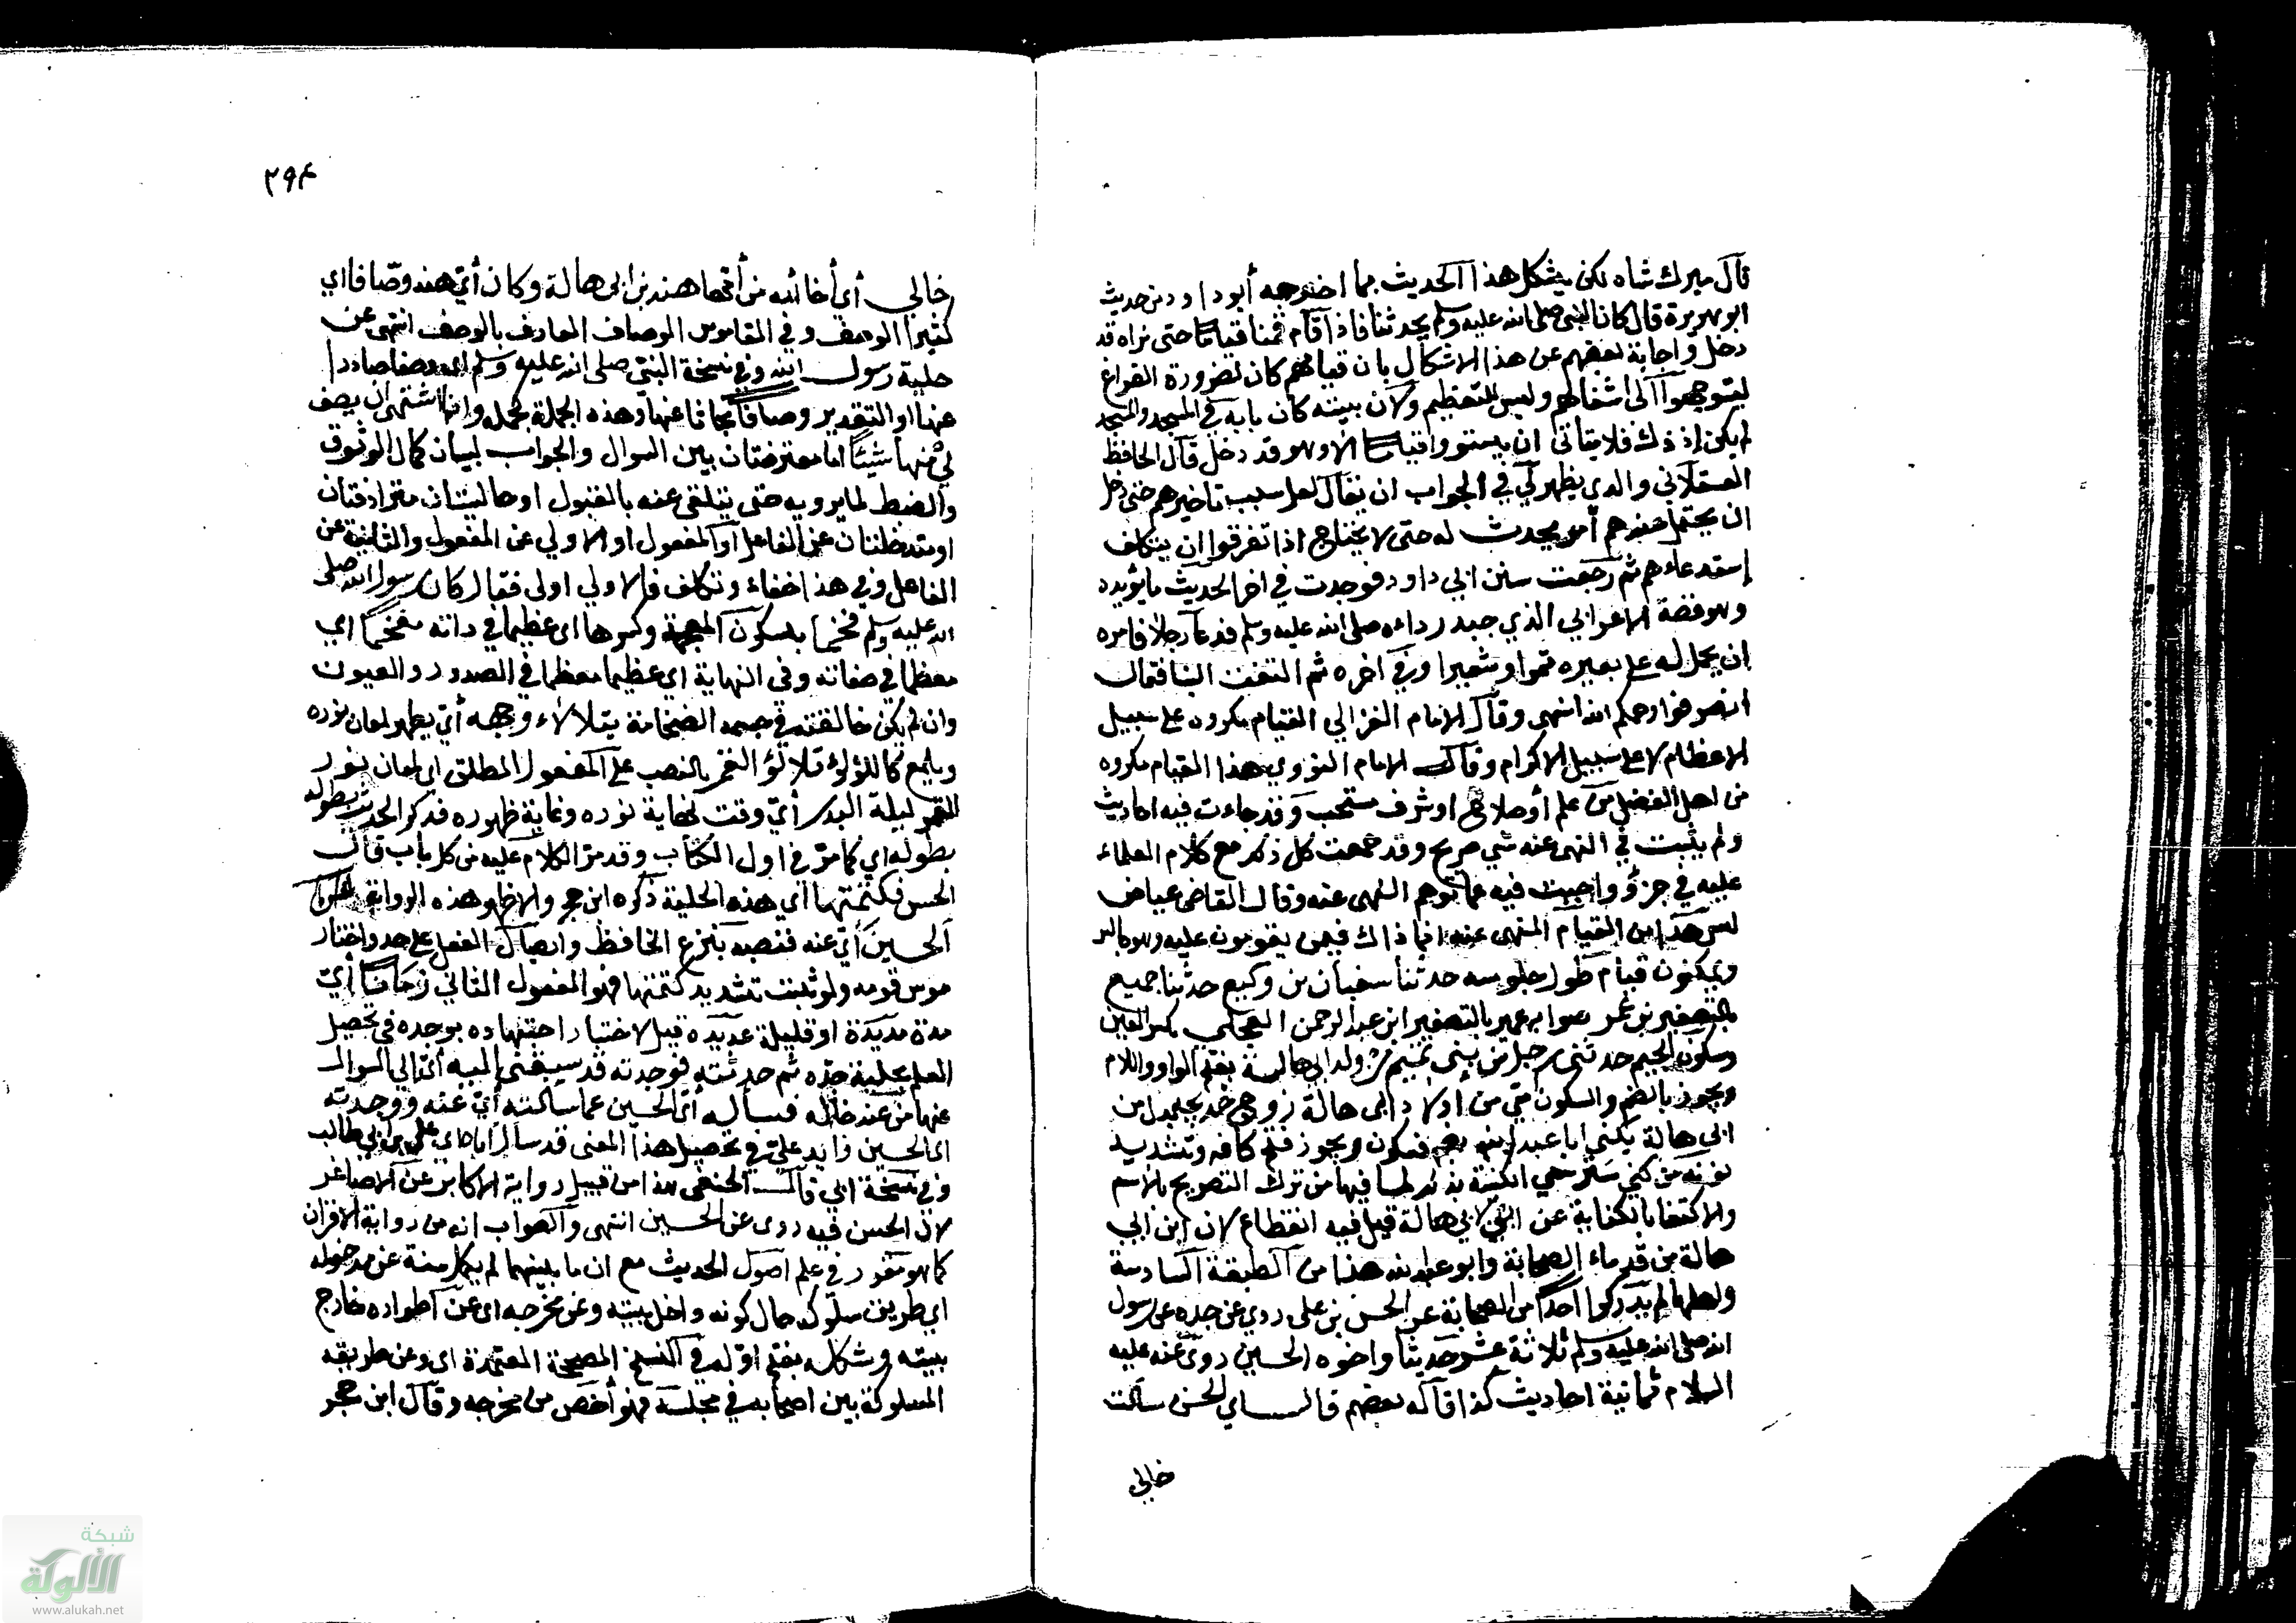 قال ميرك شاه لكن يشكل هذا الحديث بما اخرجه أبو داود من حديث
ابو هريرة قال كان النبي صلى الله عليه وسلم يحدثنا فاذا قام قمنا قياما حتى نراه قد
دخل واجابة بعضهم عن هذا الاشكال بان قيامهم كان لضرورة الفراغ
ليتوجهوا الى اشغالهم وليس للتعظيم ولان بيته كان بابه في المسجد والمسجد
لم يكن اذ ذاك فلا يتاتى ان يستووا قياما الا وهو قد دخل قال الحافظ
العسقلاني والذي يظهر لي في الجواب ان يقال لعل سبب تاخيرهم حتى دخل
ان يحتمل عندهم أمر يحدث له حتى لا يحتاج اذا تفرقوا ان يتكلف
استدعاءهم ثم رجعت سنن ابي داود فوجدت في اخر الحديث ما يؤيده
وهو قصة الاعرابي الذي جبد رداءه صلى الله عليه وسلم فدعا رجلا فامره
ان يحمل له على بعيره تمرا وشعيرا وفي اخره ثم التفت الينا فقال
انصرفوا رحمكم الله انتهى وقال الامام الغزالي القيام مكروه على سبيل
الاعظام لا على سبيل الاكرام وقال الامام النووي هذا القيام مكروه
من اهل الفضل من علم أو صلاح او شرف مستحب وقد جاءت فيه احاديث
ولم يثبت في النهى عنه شي صريح وقد جمعت كل ذكر مع كلام العلماء
عليه في جزؤ واجبت فيه عما توهم النهى عنه وقال القاضى عياض
ليس هذا من القيام المنهى عنه انما ذاك فيمن يقومون عليه وهو جالس
ويمكثون قياما طول جلوسه حدثنا سفيان بن وكيع حدثنا جميع
بالتصغير بن عمر صوابه عمير بالتصغير ابن عبد الرحمن العجلي بكسر العين
وسكون الجيم حدثني رجل من بني تميم من ولد ابي هالة بفتح الواو واللام
ويجوز بالضم والسكون مي من أولاد ابى هالة زوج خديجة بدل من
ابي هالة يكنى ابا عبد الله بضم فسكون ويجوز فتح كافه وتشديد
نونه من كني ستر سمي الكنية بذلك لما فيها من ترك التصريح بالاسم
والاكتفا بالكناية عن ابن لابي هالة قيل فيه انقطاع لان ابن ابي
هالة من قدماء الصحابة وابو عبد الله هذا من الطبقة السادسة
ولعلها لم يدركوا احدا من الصحابة عن الحسن بن على روي عن جده عن رسول
الله صلى الله عليه وسلم ثلاثة عشر حديثا واخوه الحسين روى عنه عليه
السلام ثمانية احاديث كذا قاله بعضهم قال اي الحسن سألت
خالي
٢٩٤
خالي أي أخا أمه من أمها هند بن ابى هالة وكان أي هند وصّافا اي
كثير الوصف وفي القاموس الوصاف العارف بالوصف انتهى عن
حلية رسول الله وفي نسخة النبي صلى الله عليه وسلم اي وصفا صادرا
عنها او التقدير وصافا مخبا عنها وهذه الجملة وانا اشتهي ان يصف
لي منها شيئا اما معترضتان بين السوال والجواب لبيان كمال الوثوق
والضبط لما يرويه حتى يتلقى عنه بالقبول او حاليتان مترادفتان
او متداخلتان عن الفاعل او المفعول او الاولي عن المفعول والثانية عن
الفاعل وفي هذا خفاء وتكلف فالاولي اولى فقال كان رسول الله صلى
الله عليه وسلم فخيما بسكون المعجمة وكسرها اي عظيما في ذاته مفخما اي
معظما في صفاته وفي النهاية اي عظيما معظما في الصدور والعيون
وان لم يكن خالقته في جسمه الضخامة يتلالاء وجهه أي يظهر لمعان نوره
ويلمع كاللؤلوء تلالؤ القمر بالنصب على المفعول المطلق اي لمعان نور
القمر ليلة البدر أي وقت نهاية نوره وغاية ظهوره فذكر الحديث بطوله
بطوله اي كما مر في اول الكتاب وقد مر الكلام عليه من كل باب قال
الحسن فكتمتها اي هذه الحلية ذكره ابن حجر والاظهر هذه الرواية
الحسين أي عنه فنصبه بنزع الخافظ وايصال الفعل على حد واختار
موسى قومه ولو ثبت تشديد كتمتها فهو المفعول الثاني زمانا أي
مدة مديدة او قليلة عديدة قيل لاختبار اجتهاده بوجده في تحصيل
العلم بحلية جده ثم حدثته فوجدته قد سبقني اليه أي الى السوال
عنها من عند خاله فسأله أي الحسين عما سألته أي عنه ووجدته
اي الحسين زايد علي في تحصيل هذا المعنى قد سأل أباه اي علي بن ابي طالب
وفي نسخة ابي قال الحنفي هذا من قبيل رواية الاكابر عن الاصاغر
لان الحسن فيه روى عن الحسين انتهى والصواب انه من رواية الاقران
كما هو مقرر في علم اصول الحديث مع ان ما بينهما لم يكمل سنة عن مدخله
اي طريق سلوكه حال كونه داخل بيته وعن مخرجه اي عن أطواره خارج
بيته وشكله بفتح اوله في النسخ المصححة المعتمدة اى وعن طريقه
المسلوكة بين اصحابه في مجلسه فهو أخص من مخرجه وقال ابن حجر
شبكة
الألوكة
www.alukah.net